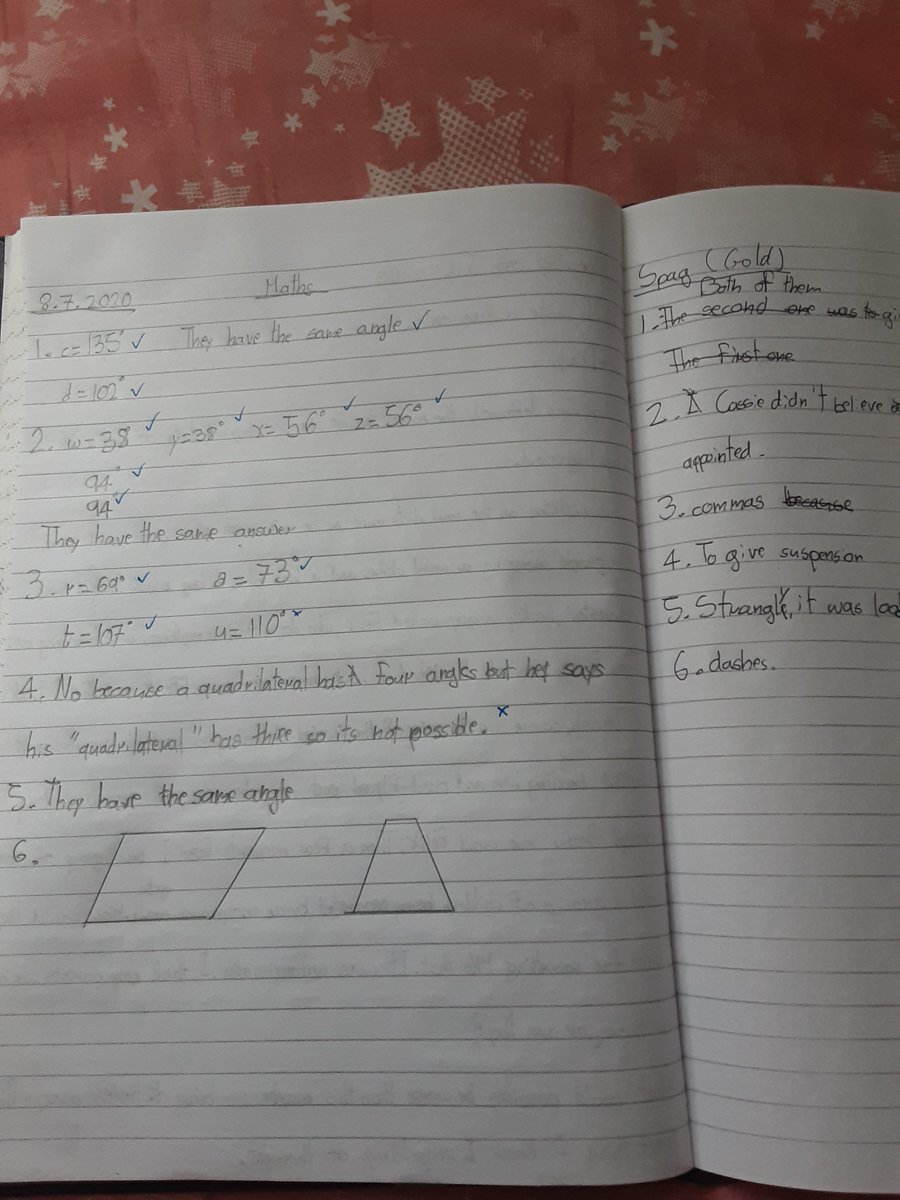 8.7.2020 Maths
1. c=135° ✓ They have the same angle ✓
d=102° ✓
2. w=38° ✓ y=38° ✓ x=56° ✓ z=56° ✓
94° ✓
94° ✓
They have the same answer
3. r=69° ✓ a=73° ✓
t=107° ✓ u=110° x
4. No because a quadrilateral has four angles but he says
his "quadrilateral" has three so its not possible. x
5. They have the same angle
6.
Spag (Gold)
Both of them
1. The second one was to gi
The first one
2. Cassie didn't believe
appointed.
3. commas because
4. To give suspension
5. Strangly, it was loa
6. dashes.